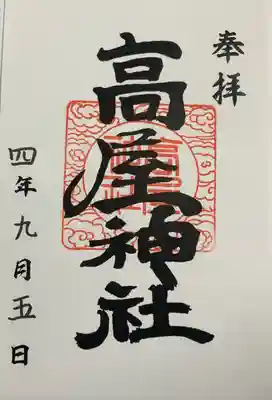 奉拝
高屋神社
四年九月五日